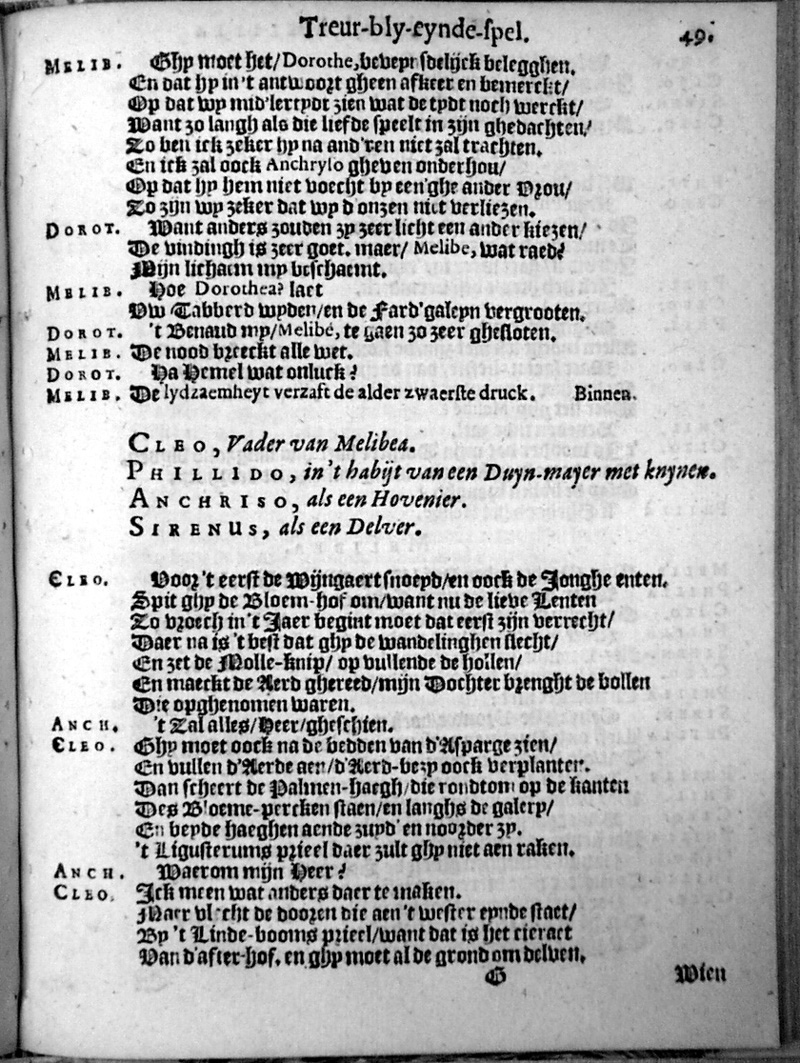 Treur-bly-eynde-spel. 49.
MELIB. Ghy moet het/ Dorothe, beveynsdelijck belegghen,
En dat hy in't antwoort gheen afkeer en bemerckt/
Op dat wy mid'lertydt zien wat de tydt noch werckt/
Want zo langh als die liefde speelt in zijn ghedachten/
Zo ben ick zeker hy na and'ren niet zal trachten.
En ick zal oock Anchryso gheven onderhou/
Op dat hy hem niet voecht by een'ghe ander Vrou/
Zo zijn wy zeker dat wy d'onzen niet verliezen.
DOROT. Want anders zouden zy zeer licht een ander kiezen/
De vindingh is zeer goet. maer/ Melibe, wat raed?
Mijn lichaem my beschaemt.
MELIB. Hoe Dorothea? laet
Uw Tabberd wyden/en de Fard'galeyn vergrooten.
DOROT. 't Benaud my/Melibé, te gaen zo zeer ghesloten.
MELIB. De nood breeckt alle wet.
DOROT. Ha Hemel wat onluck!
MELIB. De lydzaemheyt verzaft de alder zwaerste druck. Binnen.
CLEO, Vader van Melibea.
PHILLIDO, in't habijt van een Duyn-mayer met knynen.
ANCHRISO, als een Hovenier.
SIRENUS, als een Delver.
CLEO. Voor 't eerst de Wijngaert snoeyd/en oock de Jonghe enten.
Spit ghy de Bloem-hof om/want nu de lieve Lenten
Zo vroech in't Jaer begint moet dat eerst zijn verrecht/
Daer na is 't best dat ghy de wandelinghen slecht/
En zet de Molle-knip/ op vullende de hollen/
En maeckt de Aerd ghereed/mijn Dochter brenght de bollen
Die opghenomen waren.
ANCH. 't Zal alles/Heer/gheschien.
CLEO. Ghy moet oock na de bedden van d'Asparge zien/
En vullen d'Aerde aen/d'Aerd-bezy oock verplanten.
Dan scheert de Palmen-haegh/die rondtom op de kanten
Des Bloeme-percken staen/en langhs de galery/
En beyde haeghen aende zuyd' en noorder zy.
't Ligusterums prieel daer zult ghy niet aen raken.
ANCH. Waerom mijn Heer?
CLEO. Ick meen wat anders daer te maken.
Maer vlecht de dooren die aen 't wester eynde staet/
By 't Linde-booms prieel/want dat is het cieraet
Van d'after-hof. en ghy moet al de grond om delven.
G Wien